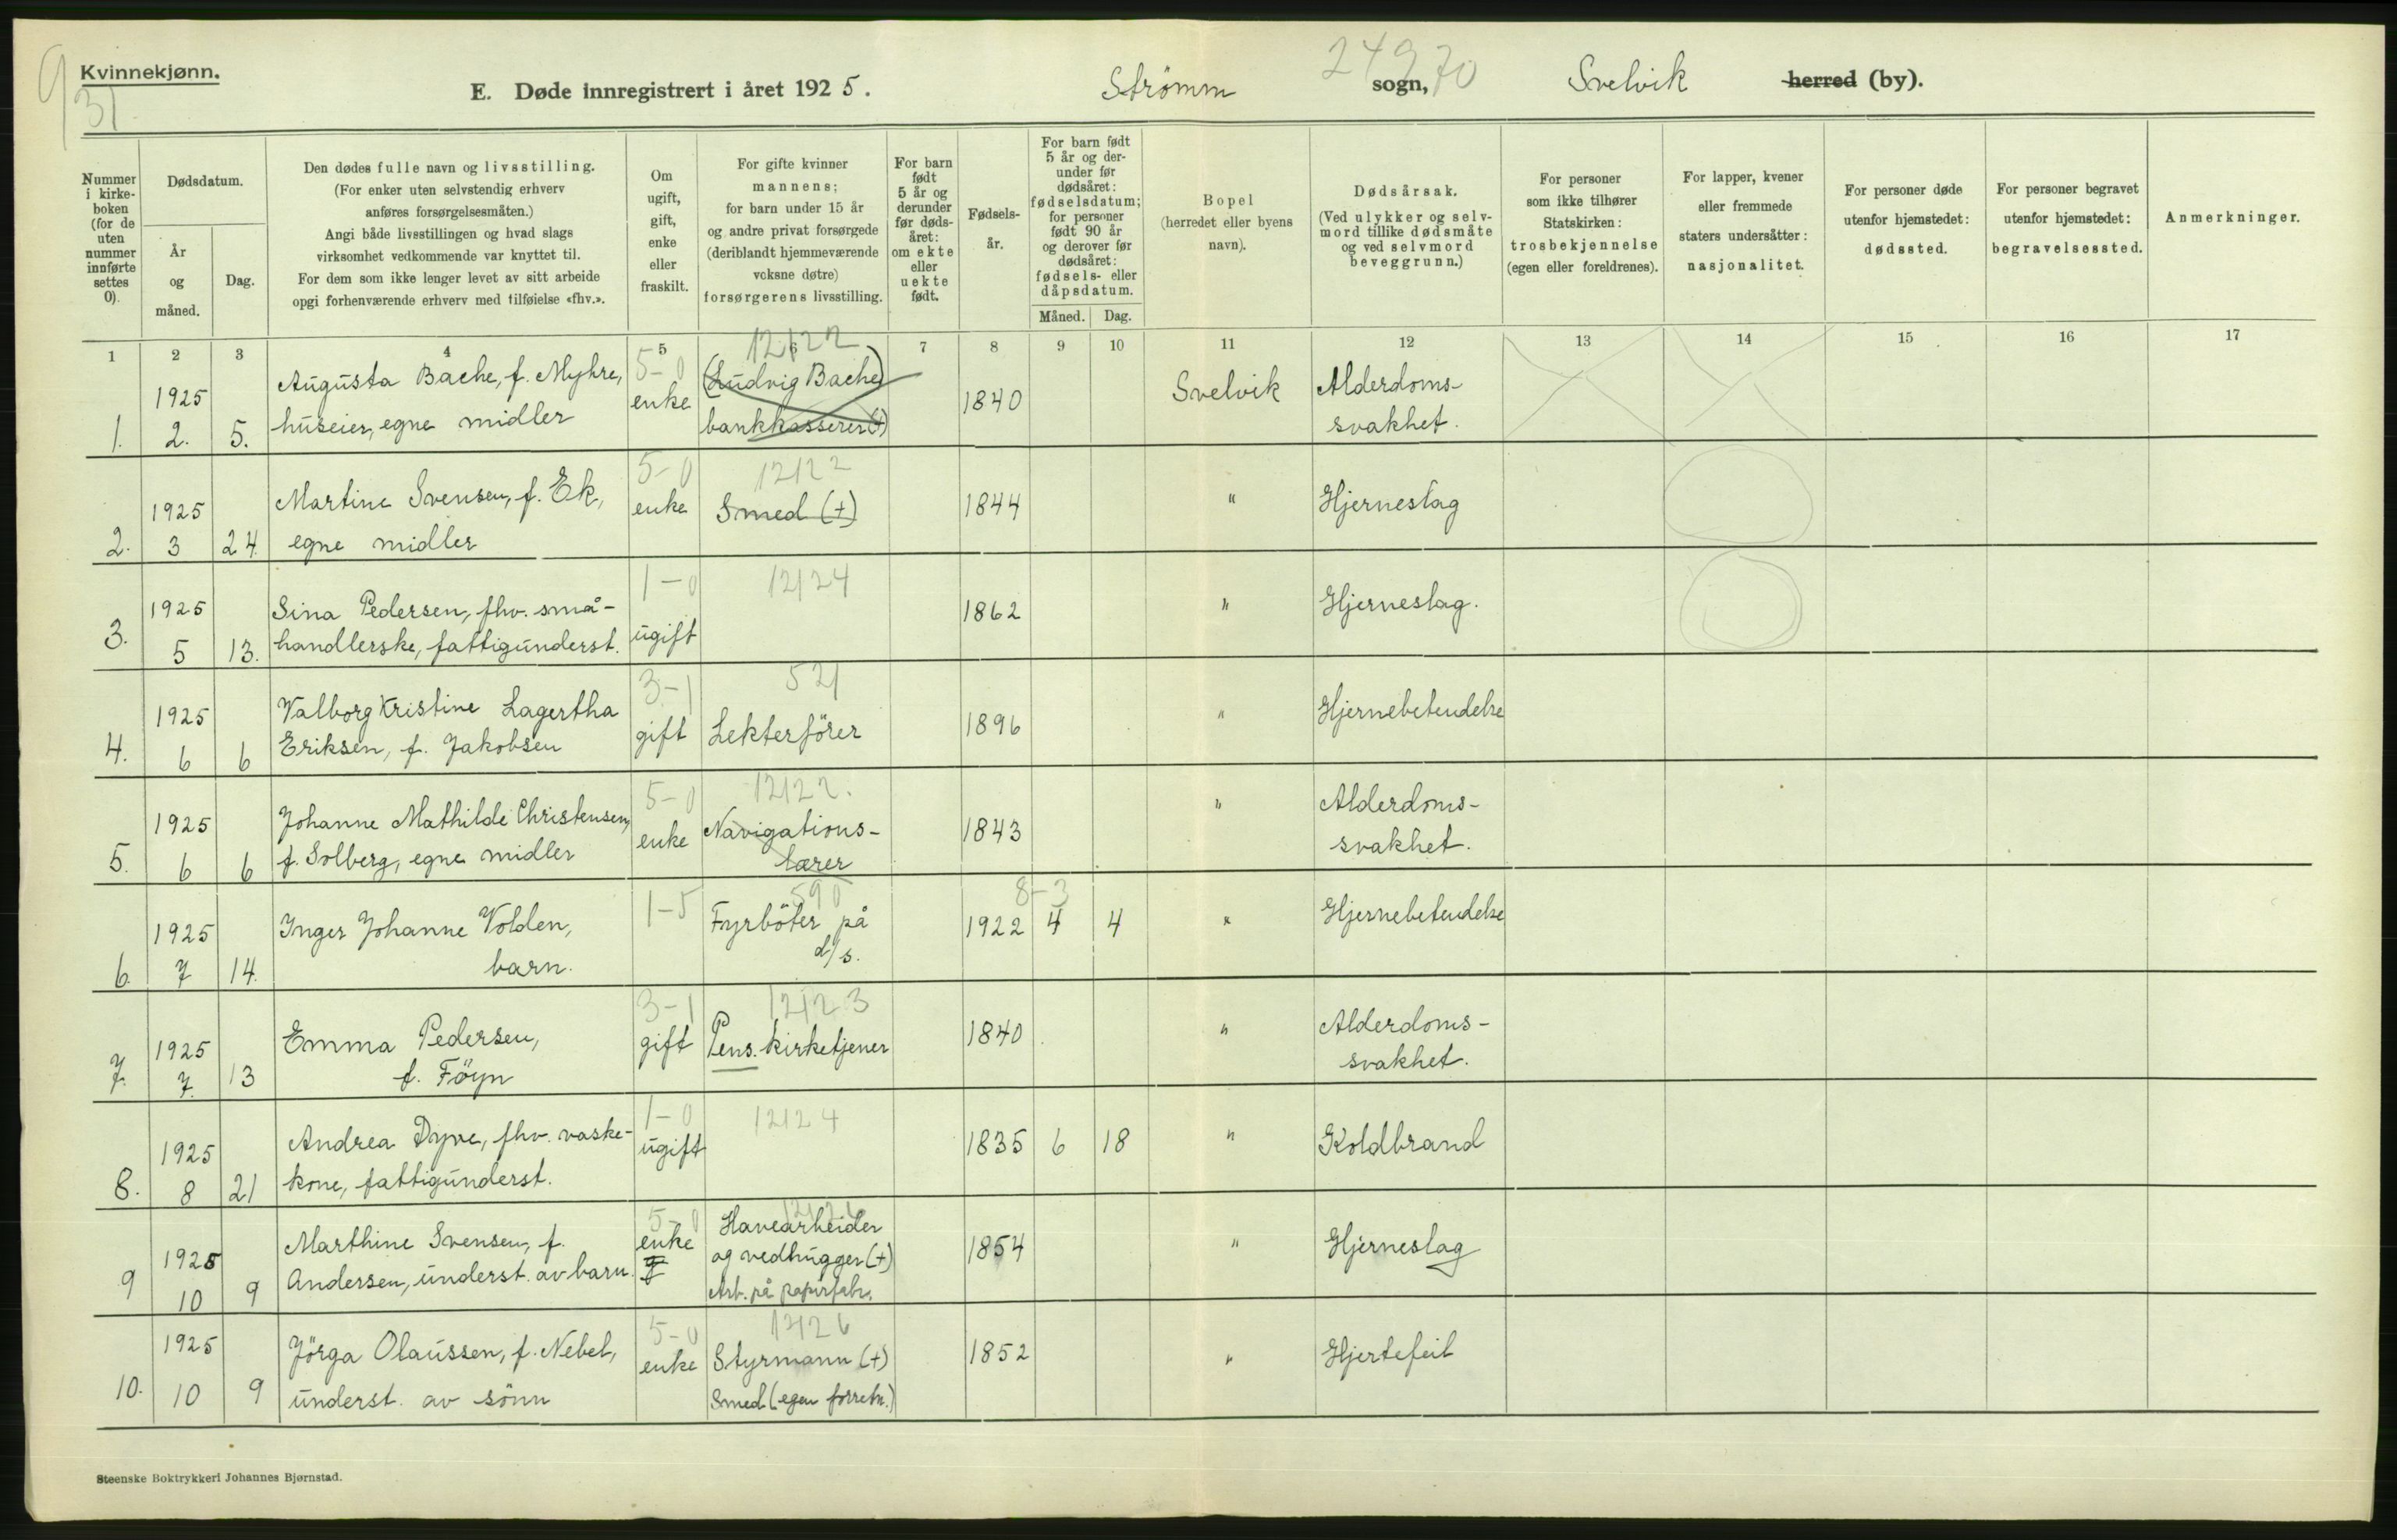 9
Kvinnekjønn.
31
E. Døde innregistrert i året 1925.
Strömm sogn, 24970
Svelvik herred (by).
Nummer i kirke-boken (for de uten nummer innførte settes 0).
Dødsdatum.
År og måned.
Dag.
Den dødes fulle navn og livsstilling.
(For enker uten selvstendig erhverv
anføres forsørgelsesmåten.)
Angi både livsstillingen og hvad slags
virksomhet vedkommende var knyttet til.
For dem som ikke lenger levet av sitt arbeide
opgi forhenværende erhverv med tilføielse «fhv.».
Om ugift, gift, enke eller fraskilt.
For gifte kvinner
mannens;
for barn under 15 år
og andre privat forsørgede
(deriblandt hjemmeværende
voksne døtre)
forsørgerens livsstilling.
For barn født 5 år og derunder før døds-året: om ekte eller uekte født.
Fødsels-år.
For barn født 5 år og der-under før dødsåret: fødselsdatum; for personer født 90 år og derover før dødsåret: fødsels- eller dåpsdatum.
Måned. Dag.
Bopel
(herredet eller byens
navn).
Dødsårsak.
(Ved ulykker og selv-
mord tillike dødsmåte
og ved selvmord
beveggrunn.)
For personer
som ikke tilhører
Statskirken:
trosbekjennelse
(egen eller foreldrenes).
For lapper, kvener
eller fremmede
staters undersåtter:
nasjonalitet.
For personer døde
utenfor hjemstedet:
dødssted.
For personer begravet
utenfor hjemstedet:
begravelsessted.
Anmerkninger.
1 2 3 4 5 6 7 8 9 10 11 12 13 14 15 16 17
1. 1925 2. 5. Augusta Bache, f. Myhre, 5-0 enke 12122 (Ludvig Bache) 1840 Svelvik Alderdoms-
huseier, egne midler bankkasserer (+) svakhet.
2. 1925 3 24. Martine Svensen, f. Ek, 5-0 enke 12122 Smed (+) 1844 " Hjerneslag
egne midler
3. 1925 5 13. Sina Pedersen, fhv. små- 1-0 ugift 12124 1862 " Hjerneslag.
handlerske, fattigunderst.
4. 1925 6 6 Valborg Kristine Lagertha 3-1 gift 521 Lekterförer 1896 " Hjernebetendelse
Eriksen, f. Jakobsen
5. 1925 6 6 Johanne Mathilde Christensen, 5-0 enke 12122. Navigations- 1843 " Alderdoms-
f. Solberg, egne midler lærer svakhet.
6. 1925 7 14. Inger Johanne Volden, 1-5 590 Fyrböter på 8-3 1922 4 4 " Hjernebetendelse
barn. d/s.
7. 1925 7. 13 Emma Pedersen, 3-1 gift 12123 Pens. kirketjener 1840 " Alderdoms-
f. Föyn svakhet.
8. 1925 8 21 Andrea Dyve, fhv. vaske- 1-0 ugift 12124 1835 6 18 " Koldbrand
kone, fattigunderst.
9 1925 10 9 Marthine Svensen, f. 5-0 enke Havearbeider 1854 " Hjerneslag
Andersen, underst. av barn. og vedhugger (+)
Arb. på papirfabr.
10. 1925 10 9 Jörga Olaussen, f. Nebel, 5-0 enke 12126 Styrmann (+) 1852 " Hjertefeil
underst. av sönn Smed (egen forretn.)
Steenske Boktrykkeri Johannes Bjørnstad.